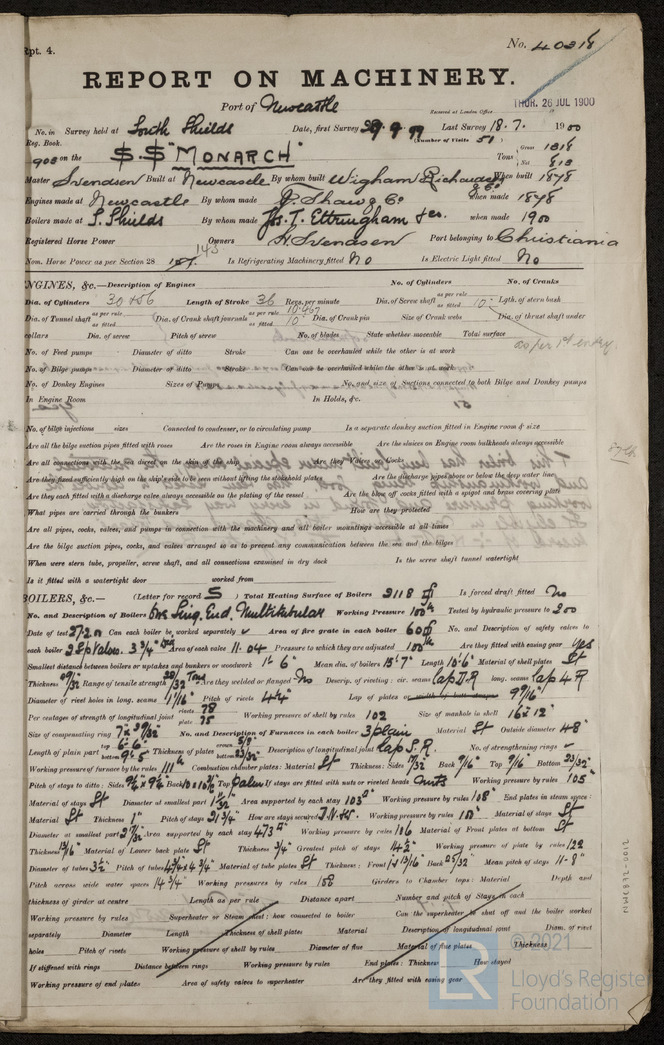 Rpt. 4.
No. 40318
REPORT ON MACHINERY.
Port of Newcastle
Received at London Office
THUR. 26 JUL 1900
No. in Survey held at South Shields Date, first Survey 29.9.99 Last Survey 18.7. 1900
Reg. Book. (Number of Visits 51)
908 on the S.S "MONARCH" Tons Gross 1318 Net 818
Master Svendsen Built at Newcastle By whom built Wigham Richardson & Co When built 1878
Engines made at Newcastle By whom made J. Shaw & Co when made 1878
Boilers made at S. Shields By whom made Jos. T. Eltringham & Co. when made 1900
Registered Horse Power Owners H. Svendsen Port belonging to Christiania
Nom. Horse Power as per Section 28 143 Is Refrigerating Machinery fitted No Is Electric Light fitted No
ENGINES, &c.—Description of Engines No. of Cylinders No. of Cranks
Dia. of Cylinders 30 & 56 Length of Stroke 36 Revs. per minute Dia. of Screw shaft as per rule as fitted 10 Lgth. of stern bush
Dia. of Tunnel shaft as per rule as fitted Dia. of Crank shaft journals as per rule 10.067 as fitted 10 Dia. of Crank pin Size of Crank webs Dia. of thrust shaft under
collars Dia. of screw Pitch of screw No. of blades State whether moveable Total surface
as per 1st entry.
No. of Feed pumps Diameter of ditto Stroke Can one be overhauled while the other is at work
No. of Bilge pumps Diameter of ditto Stroke Can one be overhauled while the other is at work
No. of Donkey Engines Sizes of Pumps No. and size of Suctions connected to both Bilge and Donkey pumps
In Engine Room In Holds, &c.
No. of bilge injections sizes Connected to condenser, or to circulating pump Is a separate donkey suction fitted in Engine room & size
Are all the bilge suction pipes fitted with roses Are the roses in Engine room always accessible Are the sluices on Engine room bulkheads always accessible
Are all connections with the sea direct on the skin of the ship Are they Valves or Cocks
Are they fixed sufficiently high on the ship's side to be seen without lifting the stokehold plates Are the discharge pipes above or below the deep water line
Are they each fitted with a discharge valve always accessible on the plating of the vessel Are the blow off cocks fitted with a spigot and brass covering plate
What pipes are carried through the bunkers How are they protected
Are all pipes, cocks, valves, and pumps in connection with the machinery and all boiler mountings accessible at all times
Are the bilge suction pipes, cocks, and valves arranged so as to prevent any communication between the sea and the bilges
When were stern tube, propeller, screw shaft, and all connections examined in dry dock Is the screw shaft tunnel watertight
Is it fitted with a watertight door worked from
BOILERS, &c.— (Letter for record S) Total Heating Surface of Boilers 2118 Is forced draft fitted No
No. and Description of Boilers One Sing. End. Multitubular Working Pressure 100 Tested by hydraulic pressure to 200
Date of test Can each boiler be worked separately Area of fire grate in each boiler 60 No. and Description of safety valves to
each boiler 2 Sp Valves. 3 3/4" Area of each valve 11.04 Pressure to which they are adjusted 100 Are they fitted with easing gear Yes
Smallest distance between boilers or uptakes and bunkers or woodwork 1' 6" Mean dia. of boilers 15' 7" Length 10' 6" Material of shell plates St
Thickness Range of tensile strength Are they welded or flanged No Descrip. of riveting: cir. seams lap D.R long. seams lap 4 R
Diameter of rivet holes in long. seams 1 1/16" Pitch of rivets 4 1/4" Lap of plates or width of butt straps 9 9/16"
Per centages of strength of longitudinal joint rivets 78 plate 75 Working pressure of shell by rules 102 Size of manhole in shell 16 x 12
Size of compensating ring No. and Description of Furnaces in each boiler 3 plain Material St Outside diameter 48"
Length of plain part top 6-6 bottom Thickness of plates crown bottom Description of longitudinal joint lap S.R. No. of strengthening rings
Working pressure of furnace by the rules 111 Combustion chamber plates: Material St Thickness: Sides Back 9/16" Top 9/16" Bottom 23/32"
Pitch of stays to ditto: Sides 9 1/4 x 9 1/4 Back Top If stays are fitted with nuts or riveted heads nuts Working pressure by rules 105
Material of stays St Diameter at smallest part Area supported by each stay 103 Working pressure by rules 108 End plates in steam space:
Material St Thickness 1" Pitch of stays 21 3/4" How are stays secured Working pressure by rules Material of stays St
Diameter at smallest part Area supported by each stay 473 Working pressure by rules 106 Material of Front plates at bottom St
Thickness 13/16" Material of Lower back plate St Thickness 3/4" Greatest pitch of stays 14 1/2" Working pressure of plate by rules 122
Diameter of tubes 3 1/2 Pitch of tubes 4 3/4 x 4 3/4 Material of tube plates St Thickness: Front 13/16" Back 25/32" Mean pitch of stays
Pitch across wide water spaces 14 3/4" Working pressures by rules Girders to Chamber tops: Material Depth and
thickness of girder at centre Length as per rule Distance apart Number and pitch of Stays in each
Working pressure by rules Superheater or Steam chest: how connected to boiler Can the superheater be shut off and the boiler worked
separately Diameter Length Thickness of shell plates Material Description of longitudinal joint Diam. of rivet
holes Pitch of rivets Working pressure of shell by rules Diameter of flue Material of flue plates Thickness
If stiffened with rings Distance between rings Working pressure by rules End plates: Thickness How stayed
Working pressure of end plates Area of safety valves to superheater Are they fitted with easing gear
NWC872-0012
© 2021
Lloyd's Register
Foundation
LR